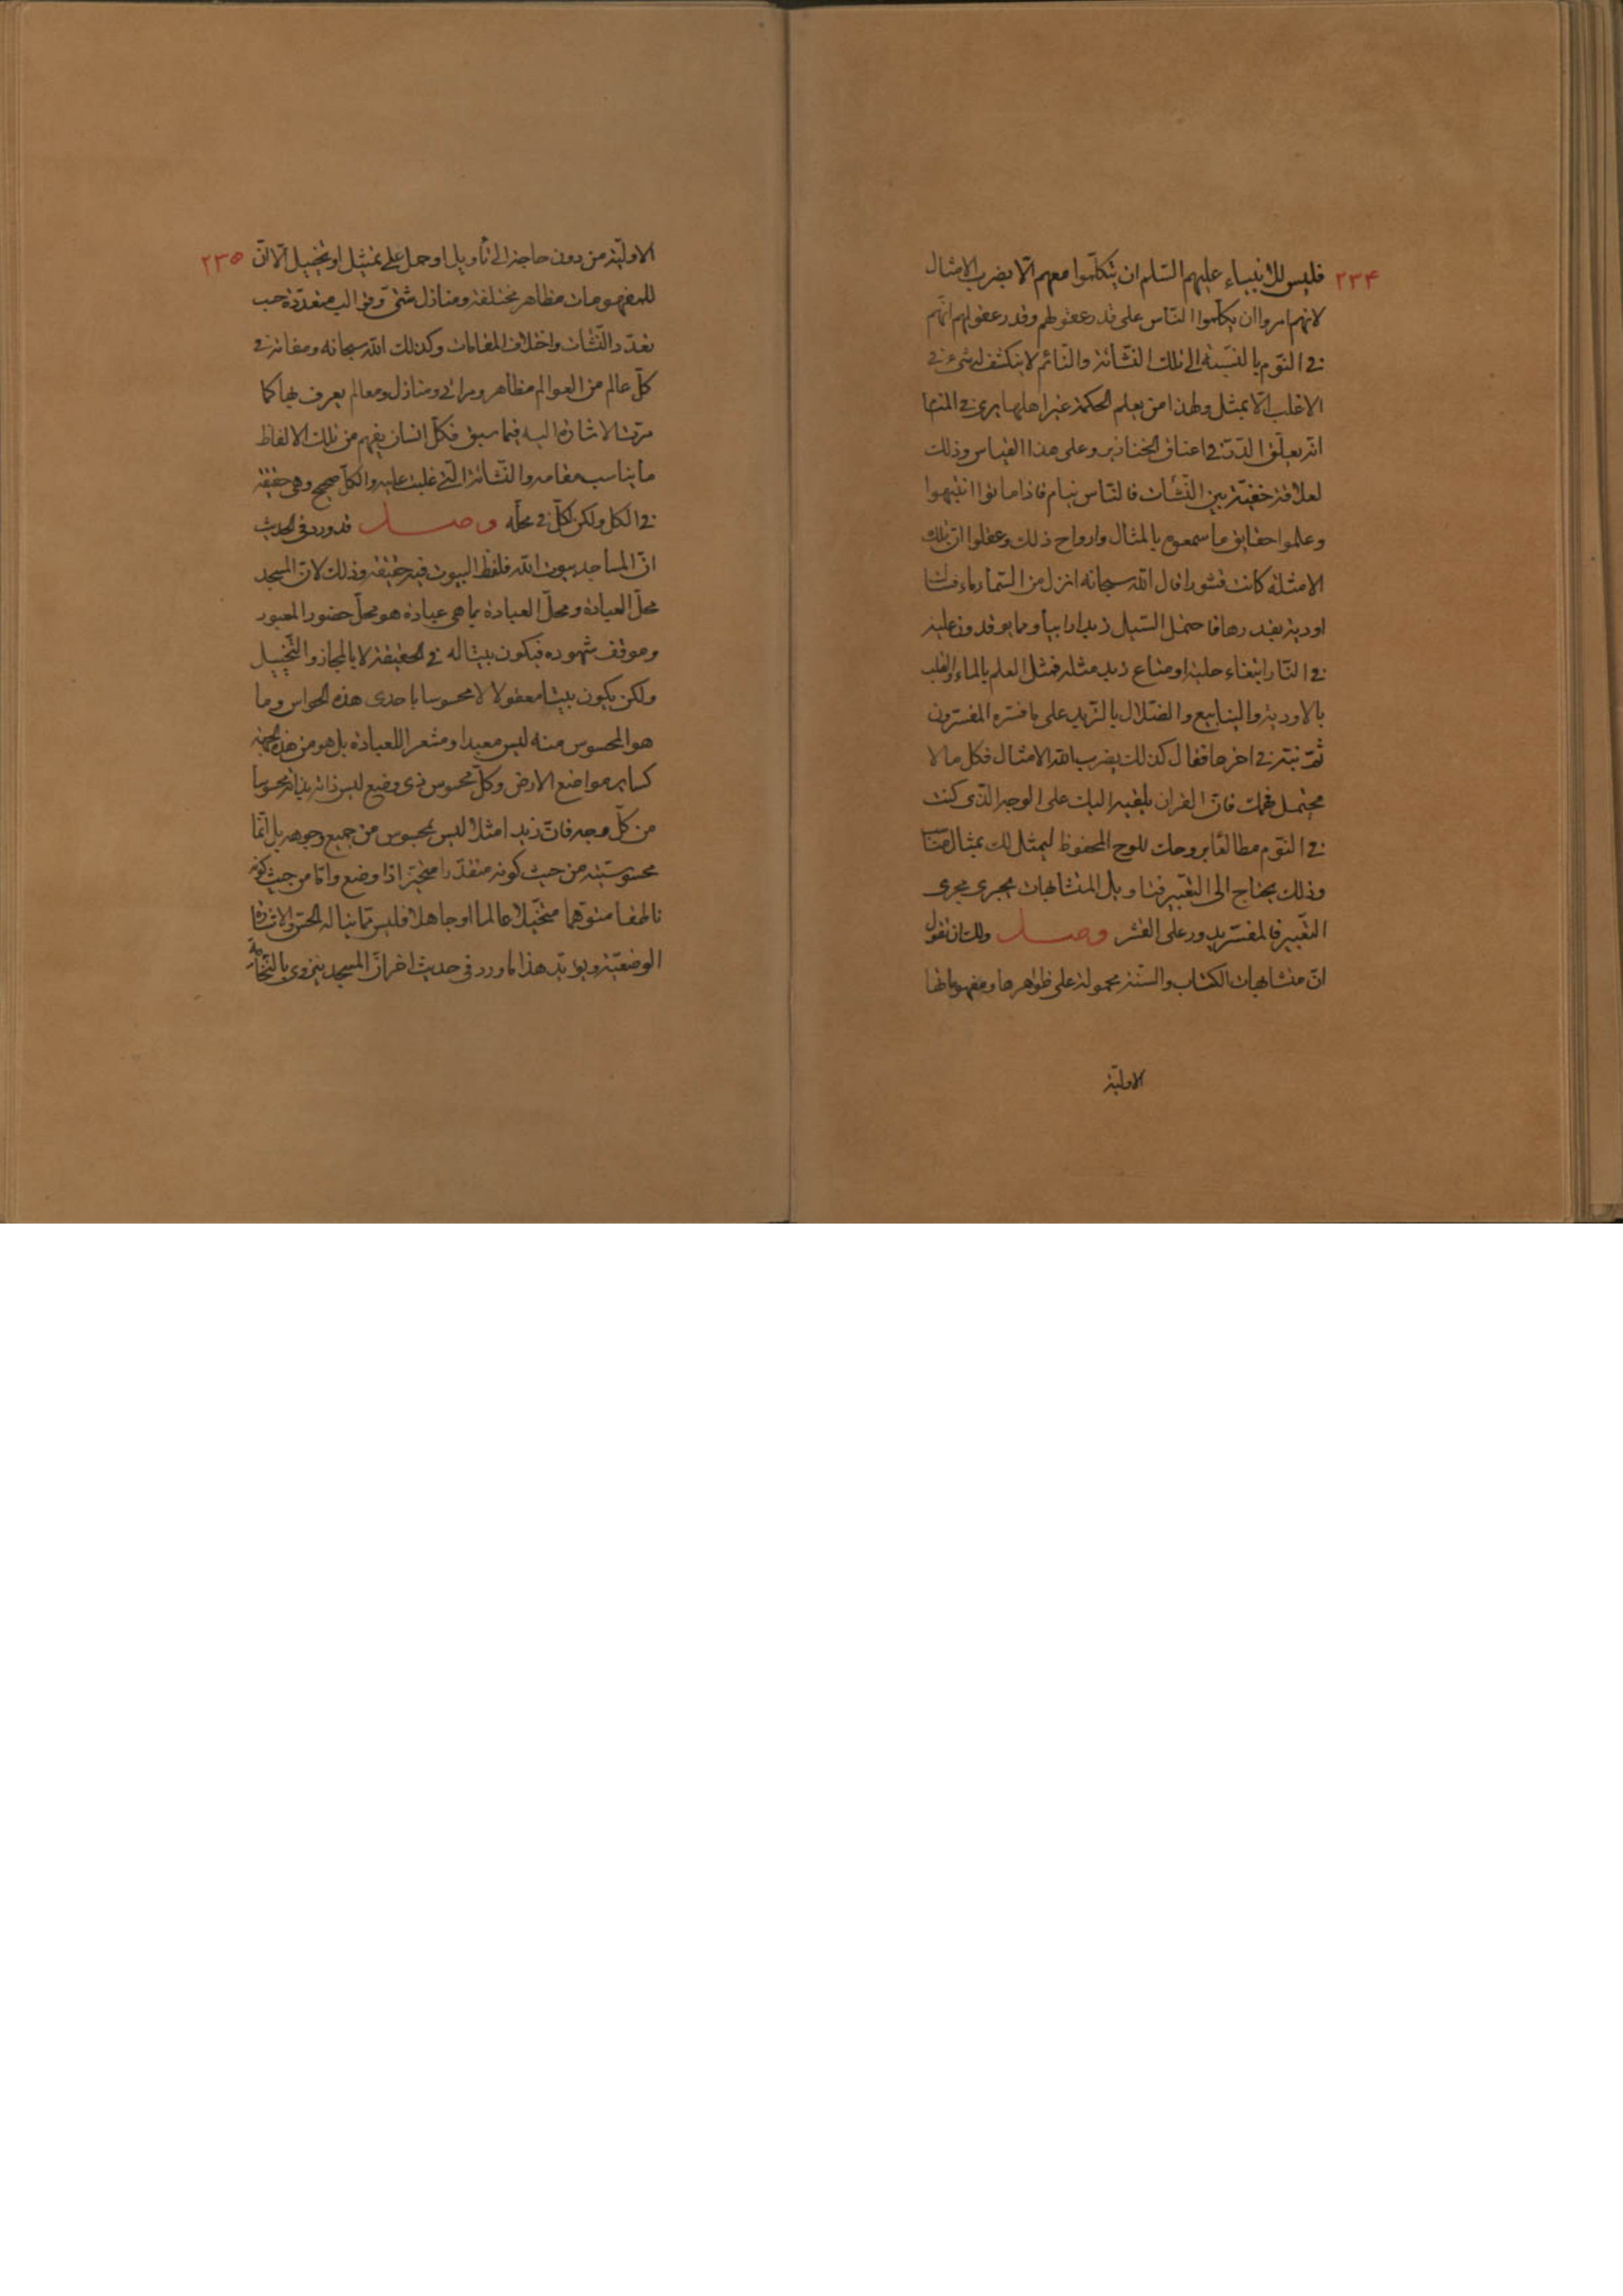 ٢٣٤ فليس للانبياء عليهم السّلم ان يتكلّموا معهم الّا بضرب الامثال
لانهم امروا ان يكلّموا النّاس على قدر عقولهم وقدر عقولهم انّهم
فى النّوم بالنّسبة الى تلك النّشأة والنّائم لا ينكشف له شىء فى
الاغلب الّا بمثل ولهذا من يعلّم الحكمة غير اهلها يرى فى المنام
انّه يعلّق الدّرّ فى اعناق الخنازير وعلى هذا القياس وذلك
لعلاقة خفيّة بين النّشآت فالنّاس نيام فاذا ماتوا انتبهوا
وعلموا حقايق ما سمعوه بالمثال وارواح ذلك وعقلوا انّ تلك
الامثلة كانت قشورا قال الله سبحانه انزل من السّماء ماء فسالت
اودية بقدرها فاحتمل السّيل زبدا رابيا وما يوقدون عليه
فى النّار ابتغاء حلية او متاع زبد مثله فمثّل العلم بالماء والقلب
بالاودية والينابيع والضّلال بالزّبد على ما فسّره المفسّرون
ثمّ نبّه فى اخرها فقال كذلك يضرب الله الامثال فكل ما لا
يحتمل فهمك فانّ القران يلقيه اليك على الوجه الّذى كنت
فى النّوم مطالعا بروحك للوح المحفوظ ليمثل لك بمثال مناسب
وذلك يحتاج الى التّعبير فتاويل المتشابهات يجرى مجرى
التّعبير فالمفسّر يدور على القشر وصل ولك ان تقول
انّ متشابهات الكتاب والسّنّة محمولة على ظواهرها ومفهوماتها
الاوليّة
٢٣٥ الاوليّة من دون حاجة الى تأويل او حمل على تمثيل او تخييل الّا انّ
للمفهومات مظاهر مختلفة ومنازل شتّى وقوالب متعدّدة حسب
تعدّد النّشآت واختلاف المقامات وكذلك الله سبحانه وصفاته فى
كلّ عالم من العوالم مظاهر ومرائى ومنازل ومعالم يعرف بها كما
مرّت الاشارة اليه فيما سبق فكلّ انسان يفهم من تلك الالفاظ
ما يناسب مقامه والنّشأة الّتى غلبت عليه والكلّ صحيح وهى حقيقة
فى الكل ولكن لكلّ فى محلّه وصل قد ورد فى الحديث
انّ المساجد بيوت الله فلفظ البيوت فيه حقيقة وذلك لانّ المسجد
محلّ العبادة ومحلّ العبادة بما هى عبادة هو محلّ حضور المعبود
وموقف شهوده فيكون بيتا له فى الحقيقة لا بالمجاز والتّخييل
ولكن يكون بيتا معقولا لا محسوسا باحدى هذه الحواس وما
هو المحسوس منه ليس معبدا ومشعرا للعبادة بل هو من هذه الجهة
كساير مواضع الارض وكلّ محسوس ذى وضع ليس ذاته بذاته محسوسا
من كلّ وجه فانّ زيدا مثلا ليس بمحسوس من جميع وجوهه بل انّما
محسوسيّته من حيث كونه متقدّرا متحيّزا ذا وضع وامّا من حيث كونه
ناطقا متوهّما متخيّلا عالما او جاهلا فليس ممّا يناله الحسّ والاشارة
الوضعيّة ويؤيّد هذا ما ورد فى حديث اخر انّ المسجد ينزوى بالنّخامة